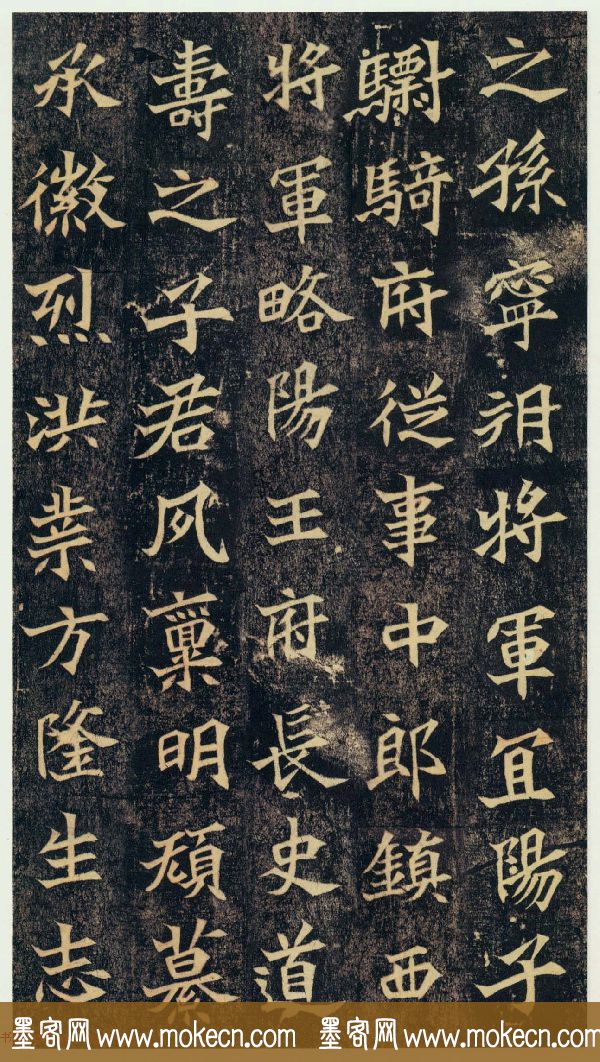 之孫寧朔將軍宜陽子
驃騎府從事中郎鎮西
將軍略陽王府長史道
壽之子君夙稟明頑慕
承徽烈洪業方隆生志
墨客网 www.mokecn.com 墨客网 www.mokecn.com
书